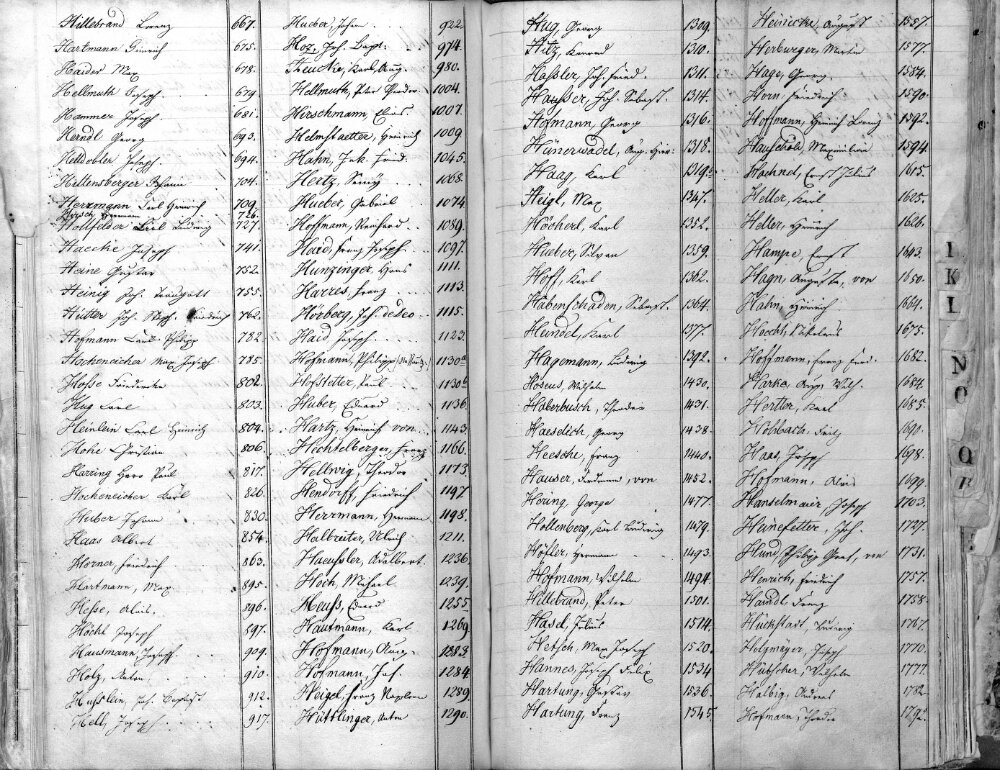 Hillebrand Lorenz 667.
Hartmann Heinrich 675.
Haider Max 678.
Hellmuth Joseph 679
Hammer Joseph 681.
Herndl Georg 693.
Helldobler Joseph 694.
Hiltensberger Johann 704.
Herrmann Carl Heinrich 709.
Hirsch Hermann 726.
Hollfelder Carl Ludwig 727.
Haecke Joseph 741.
Heine Gustav 752.
Heinig Joh. Traugott 755.
Hutter Joh. Friedrich 762.
Hofmann Carl Philipp 782.
Hocheneicher Max Joseph 785.
Hosse 802.
Hug Carl 803.
Heinlein Carl Heinrich 804.
Hohe Christian 806.
Harring Harro Paul 817.
Hocheneicher Carl 826.
Herber Johann 830.
Haas Albert 854.
Horner Friedrich 863.
Hartmann, Max 895.
Hesse, Alois 896.
Höchl Joseph 897.
Hausmann Joseph 909.
Holz, Anton 910.
Husslein, Joh. Baptist 912.
Hell, Joseph 917.
Hueber, Johann 922.
Hoz, Joh. Bapt. 974.
Karl, Aug. 980.
Hellmuth, Peter 1004.
Hirschmann 1007.
Helmstaetter, Heinrich 1009
Hahn, Joh. Fried. 1045.
Hertz, 1068.
Hueber, Gabriel 1074
Hoffmann, Reinhard 1089.
Hard, Franz Joseph 1097.
Hunzinger, Hans 1111.
Harres, Franz 1113.
Horberg, Joh. 1115.
Haid Joseph 1123.
Hofmann, Philipp 1130a
Hofstetter, Paul 1130b
Huber, Eduard 1136.
Hartz, Heinrich von 1143
Hechtelberger, Franz 1166.
Hellwig, Theodor 1173
Hendorff, Friedrich 1197
Herrmann, Hermann 1198.
Halbreiter, Ulrich 1211.
Haeussler, Adalbert 1236.
Hoch, Michael 1239.
Heuss, Eduard 1255
Hautmann, Karl 1269
Hofmann, 1283
Hofmann, Joh. 1284
Heigel, Franz Napoleon 1289.
Hüttlinger, Anton 1290.
Hug, Georg 1309.
Hitz, Konrad 1310.
Hassler, Joh. Fried. 1311.
Hausser, Joh. Sebast. 1314.
Hofmann, Georg 1316.
Hünerwadel, Aug. Hier. 1318.
Haag, Karl 1319
Heigl, Max 1347.
Höcherl, Karl 1352.
Hueber, Silvan 1359.
Hoff, Karl 1362.
Habenschaden, Sebast. 1364.
Hundel, Karl 1377.
Hagemann, Ludwig 1392.
Hoseus, Wilhelm 1430.
Haberbusch, Theodor 1431.
Haesdich, Georg 1438.
Heesche, Franz 1440.
Hauser, Ferdinand, von 1452.
Horing, George 1477.
Hollenberg, Karl Ludwig 1479.
Höfler, Hermann 1493.
Hofmann, Wilhelm 1494.
Hillebrand, Peter 1501.
Hasel, Julius 1514.
Hetsch, Max Joseph 1520.
Hannes, Joseph Felix 1534
Hartung, Gustav 1536.
Hartung, Franz 1545.
Heinicke, August 1557.
Herburger, Martin 1577.
Hage, Georg 1584.
Horn, Friedrich 1590.
Hoffmann, Heinrich Lorenz 1592.
Haushofer, Maximilian 1594.
Haehnel, Ernst Julius 1615.
Heller, Karl 1625.
Heller, Heinrich 1626.
Hampe, Ernst 1643.
Hagn, Auguste, von 1650.
Hahn, Heinrich 1664.
Hecht, Nikolaus 1675.
Hoffmann, Franz Ferd. 1682.
Harke, Aug. Wilh. 1684.
Hertter, Karl 1685.
Holsbach, Fritz 1690.
Haes, Joseph 1698.
Hofmann, Alois 1699.
Hanselmaier, Joseph 1703.
Heinefetter, Joh. 1727.
Hund, Philipp Graf, von 1731.
Henrich, Friedrich 1757.
Haindl, Franz 1758.
Hückstadt, Ludwig 1767.
Holzmeyer, Joseph 1770.
Hübscher, Wilhelm 1777.
Halbig, Andreas 1782.
Hofmann, Theodor 1792.
I
K
L
N
O
Q
R